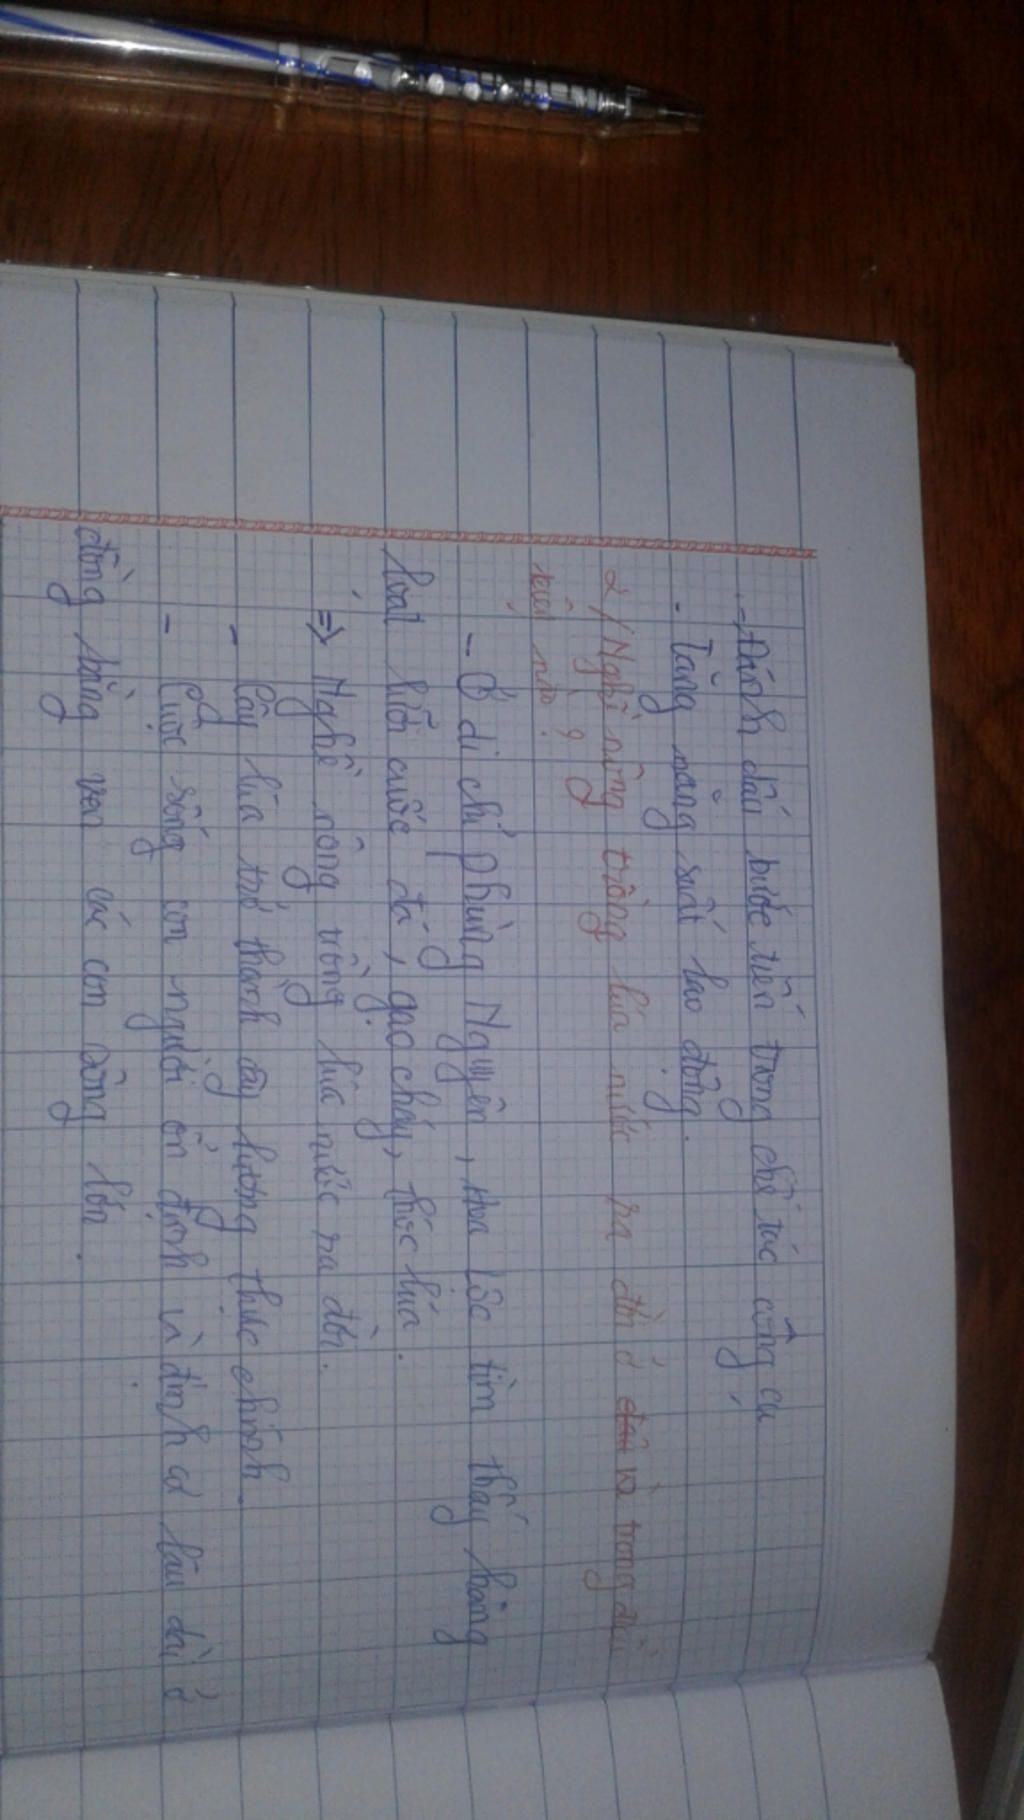 - Đánh dấu bước tiến trong chế tác công cụ
- Tăng năng suất lao động.
2/ Nghề nông trồng lúa nước ra đời ở đâu và trong điều
kiện nào?
- Ở di chỉ Phùng Nguyên, Hoa Lộc tìm thấy hàng
loạt lưỡi cuốc đá, gạo cháy, thóc lúa.
=> Nghề nông trồng lúa nước ra đời.
- Cây lúa trở thành cây lương thực chính.
- Cuộc sống con người ổn định và định cư lâu dài ở
đồng bằng ven các con sông lớn.